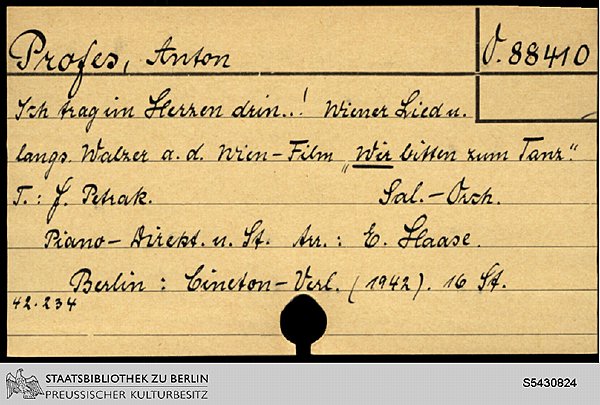 Profes, Anton
O. 88410
Ich trag im Herzen drin..! Wiener Lied u.
langs. Walzer a. d. Wien-Film „Wir bitten zum Tanz“.
T.: J. Petrak. Sal.-Orch.
Piano-Direkt. u. St. Arr.: E. Haase.
Berlin: Cineton-Verl. (1942). 16 St.
42.234
STAATSBIBLIOTHEK ZU BERLIN
PREUSSISCHER KULTURBESITZ
S5430824